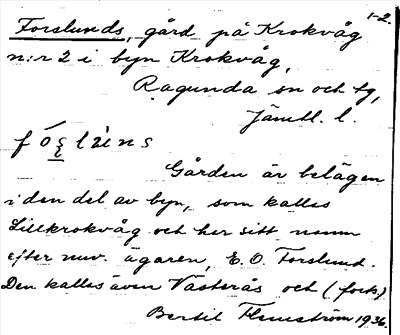 1-2.
Forslunds, gård på Krokvåg
n:r 2 i byn Krokvåg,
Ragunda sn och tg,
Jämtl. l.
Gården är belägen
i den del av byn, som kallas
Lillkrokvåg och har sitt namn
efter nuv. ägaren, E. O. Forslund.
Den kallas även Västerås och (fork.)
Bertil Flemström 1936.